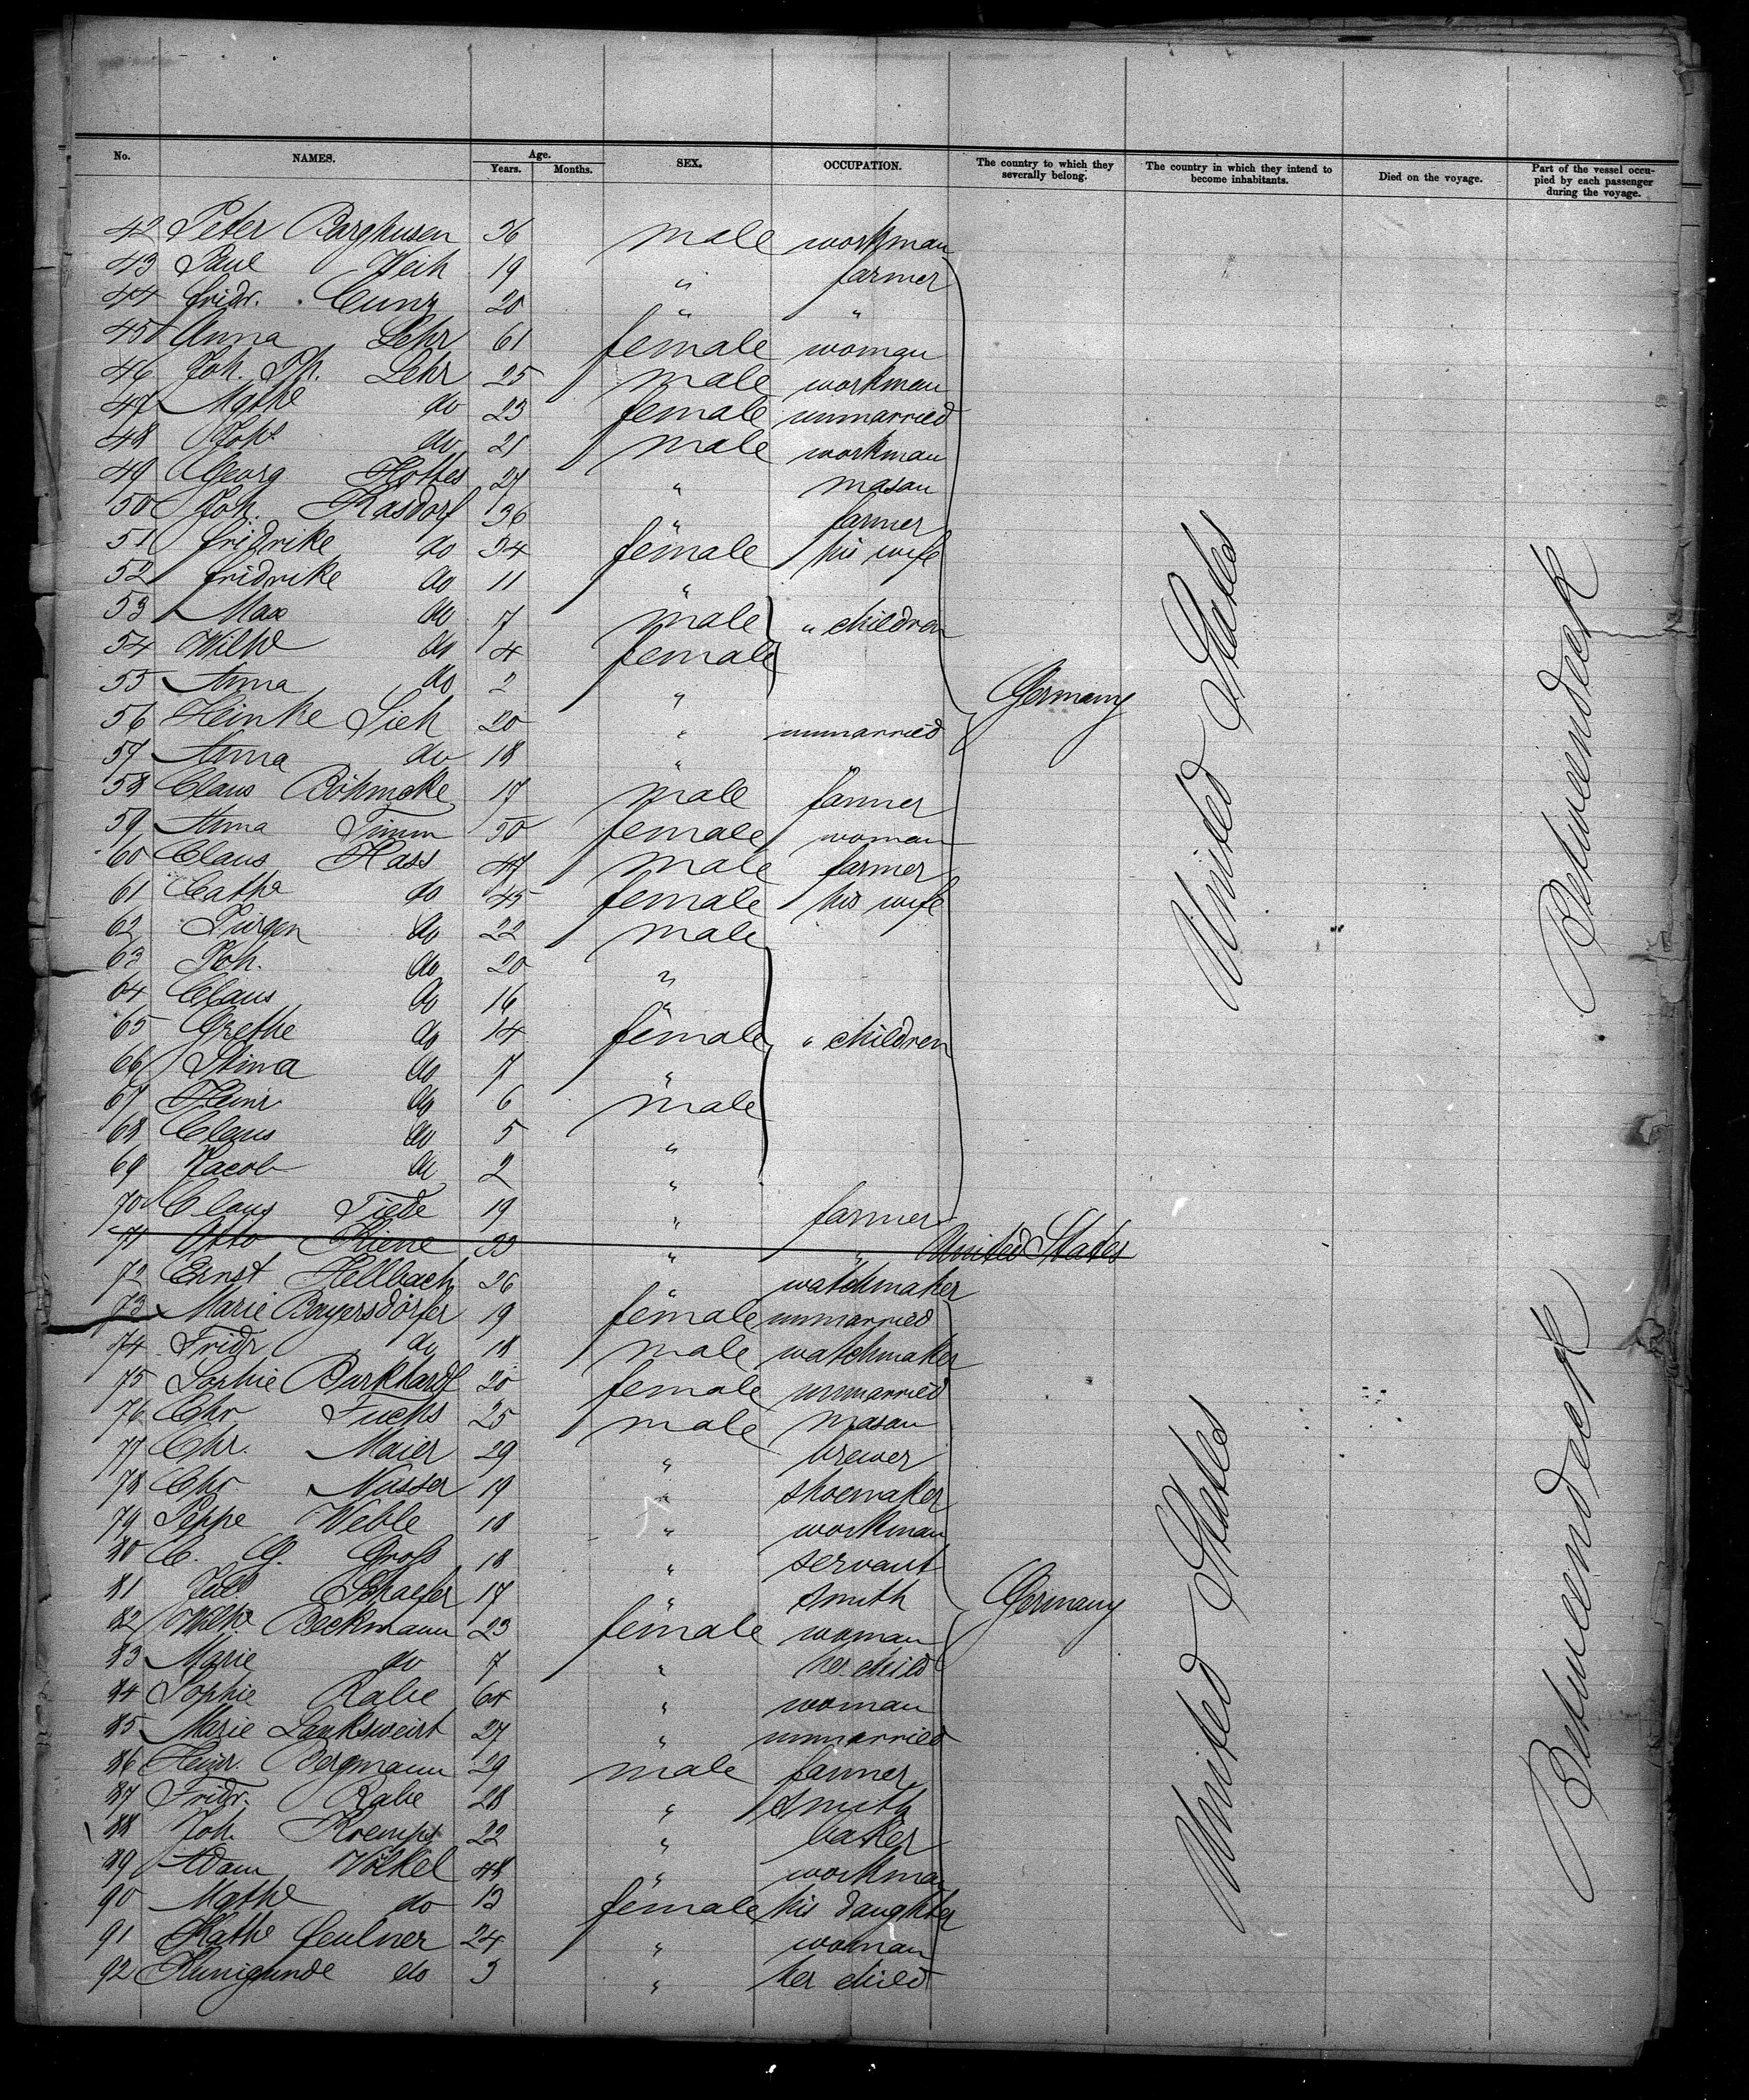 No. NAMES. Age. Years. Months. SEX. OCCUPATION. The country to which they severally belong. The country in which they intend to become inhabitants. Died on the voyage. Part of the vessel occupied by each passenger during the voyage.
42 Peter Barghusen 36 male workman
43 Paul Weih 19 " farmer
44 Fridr. Cunz 20 " "
45 Anna Lehr 61 female woman
46 Joh. Ph. Lehr 25 male workman
47 Mathe do 23 female unmarried
48 do 21 male workman
49 Georg Hottes 27 " mason
50 Joh. Kasdorf 36 " farmer
51 Fridrike do 34 female his wife
52 Fridrike do 11 "
53 Max do 7 male " children
54 Wilhe do 4 female
55 Anna do 2 " Germany United States Betweendeck
56 Heinke Sieh 20 " unmarried
57 Anna do 18 " "
58 Claus Böhmcke 17 male farmer
59 Anna Timm 50 female woman
60 Claus Hass 47 male farmer
61 Cathe do 45 female his wife
62 Jürgen do 22 male
63 Joh. do 20 "
64 Claus do 16 "
65 Grethe do 14 female " children
66 Stina do 7 "
67 Heinr do 6 male
68 Claus do 5 "
69 Jacob do 2 "
70 Claus Tiede 19 " farmer
71 Otto Kiene 33 " " United States
72 Ernst Hellbach 26 " watchmaker
73 Marie Bayersdörfer 19 female unmarried
74 Fridr do 18 male watchmaker
75 Sophie Burkhardt 20 female unmarried
76 Chr Fuchs 25 male mason
77 Chr. Maier 29 " brewer
78 Chr Nusser 19 " shoemaker
79 Seppe Weble 18 " workman
80 C. G. Gross 18 " servant
81 Schaefer 17 " smith Germany United States Betweendeck
82 Wilhe Beckmann 23 female woman
83 Marie do 7 " her child
84 Sophie Rabe 64 " woman
85 Marie Lanksweirt 27 " unmarried
86 Heinr. Bergmann 29 male farmer
87 Fridr. Rabe 28 " smith
88 Joh. 22 " baker
89 Adam Völkel 48 " workman
90 Mathe do 13 female his daughter
91 Kathe Feulner 24 " woman
92 Kunigunde do 3 " her child